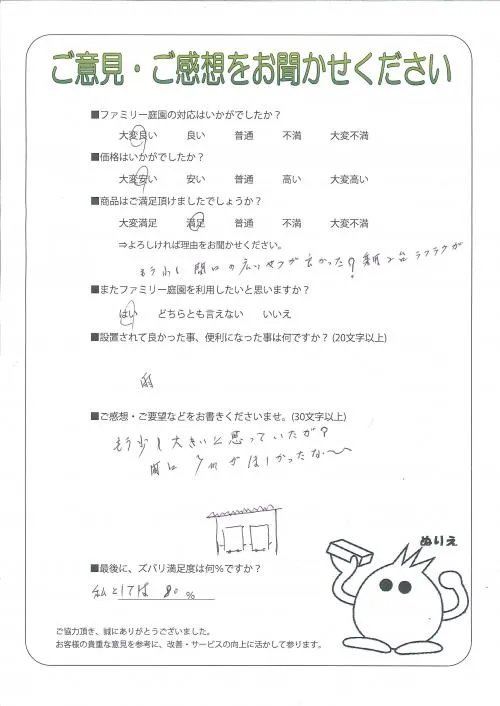 ご意見・ご感想をお聞かせください
■ファミリー庭園の対応はいかがでしたか？
大変良い 良い 普通 不満 大変不満
■価格はいかがでしたか？
大変安い 安い 普通 高い 大変高い
■商品はご満足頂けましたでしょうか？
大変満足 満足 普通 不満 大変不満
⇒よろしければ理由をお聞かせください。
もう少し間口の広いやつが良かった？ 2台ラクラクが
■またファミリー庭園を利用したいと思いますか？
はい どちらとも言えない いいえ
■設置されて良かった事、便利になった事は何ですか？(20文字以上)
■ご感想・ご要望などをお書きくださいませ。(30文字以上)
もう少し大きいと思っていたが？
間口 がほしかったな〜
ぬりえ
■最後に、ズバリ満足度は何％ですか？
私としては 80 %
ご協力頂き、誠にありがとうございました。
お客様の貴重な意見を参考に、改善・サービスの向上に活かして参ります。